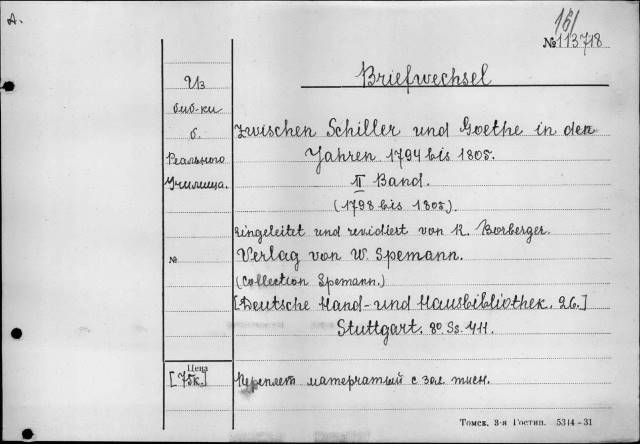 А.
161
№ 113718
Briefwechsel
Из
биб-ки
б.
Реального
Училища.
zwischen Schiller und Goethe in den
Jahren 1794 bis 1805.
II Band.
(1798 bis 1805).
eingeleitet und revidiert von R. Borberger.
№
Verlag von W. Spemann.
(Collection Spemann.)
[Deutsche Hand- und Hausbibliothek. 26.]
Stuttgart. 8o. Ss. 411.
Цена
[75к.]
Переплет матерчатый с зол. тисн.
Томск, 3-я Гостип. 5314-31